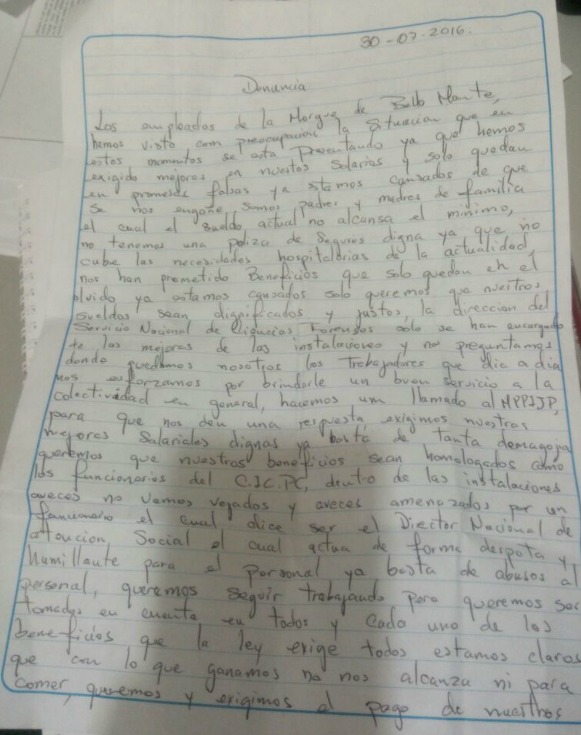 30-07-2016.
Denuncia
Los empleados de la Morgue de Bello Monte,
hemos visto con preocupación la situación que en
estos momentos se esta Presentando ya que hemos
exigido mejoras en nuestos Salarios y solo quedan
en promesas falsas ya stamos cansados de que
se nos engañe somos padres y madres de familia
el cual el sueldo actual no alcansa el minimo,
no tenemos una poliza de Seguros digna ya que no
cubre las necesidades hospitalarias de la actualidad,
nos han prometido Beneficios que solo quedan en el
olvido ya estamos cansados solo queremos que nuestros
sueldos sean dignificados y justos, la direccion del
Servicio Nacional de Ciencias Forenses solo se han encargado
de las mejoras de las instalaciones y nos preguntamos
donde quedamos nosotros los Trabajadores que dia a dia
nos esforzamos por brindarle un buen servicio a la
colectividad en general, hacemos un llamado al MPPIJP,
para que nos den una respuesta exigimos nuestras
mejoras Salariales dignas ya basta de tanta demagogia
queremos que nuestros beneficios sean homologados como
los funcionarios del C.I.C.P.C, dento de las instalaciones
aveces no vemos vejados y aveces amenazados por un
funcionario el cual dice ser el Director Nacional de
atencion Social el cual actua de forma despota y
humillante para el personal ya basta de abusos al
personal, queremos seguir trabajando pero queremos ser
tomados en cuenta en todos y cada uno de los
beneficios que la ley exige todos estamos claros
que con lo que ganamos no nos alcanza ni para
comer, queremos y exigimos el pago de nuestros